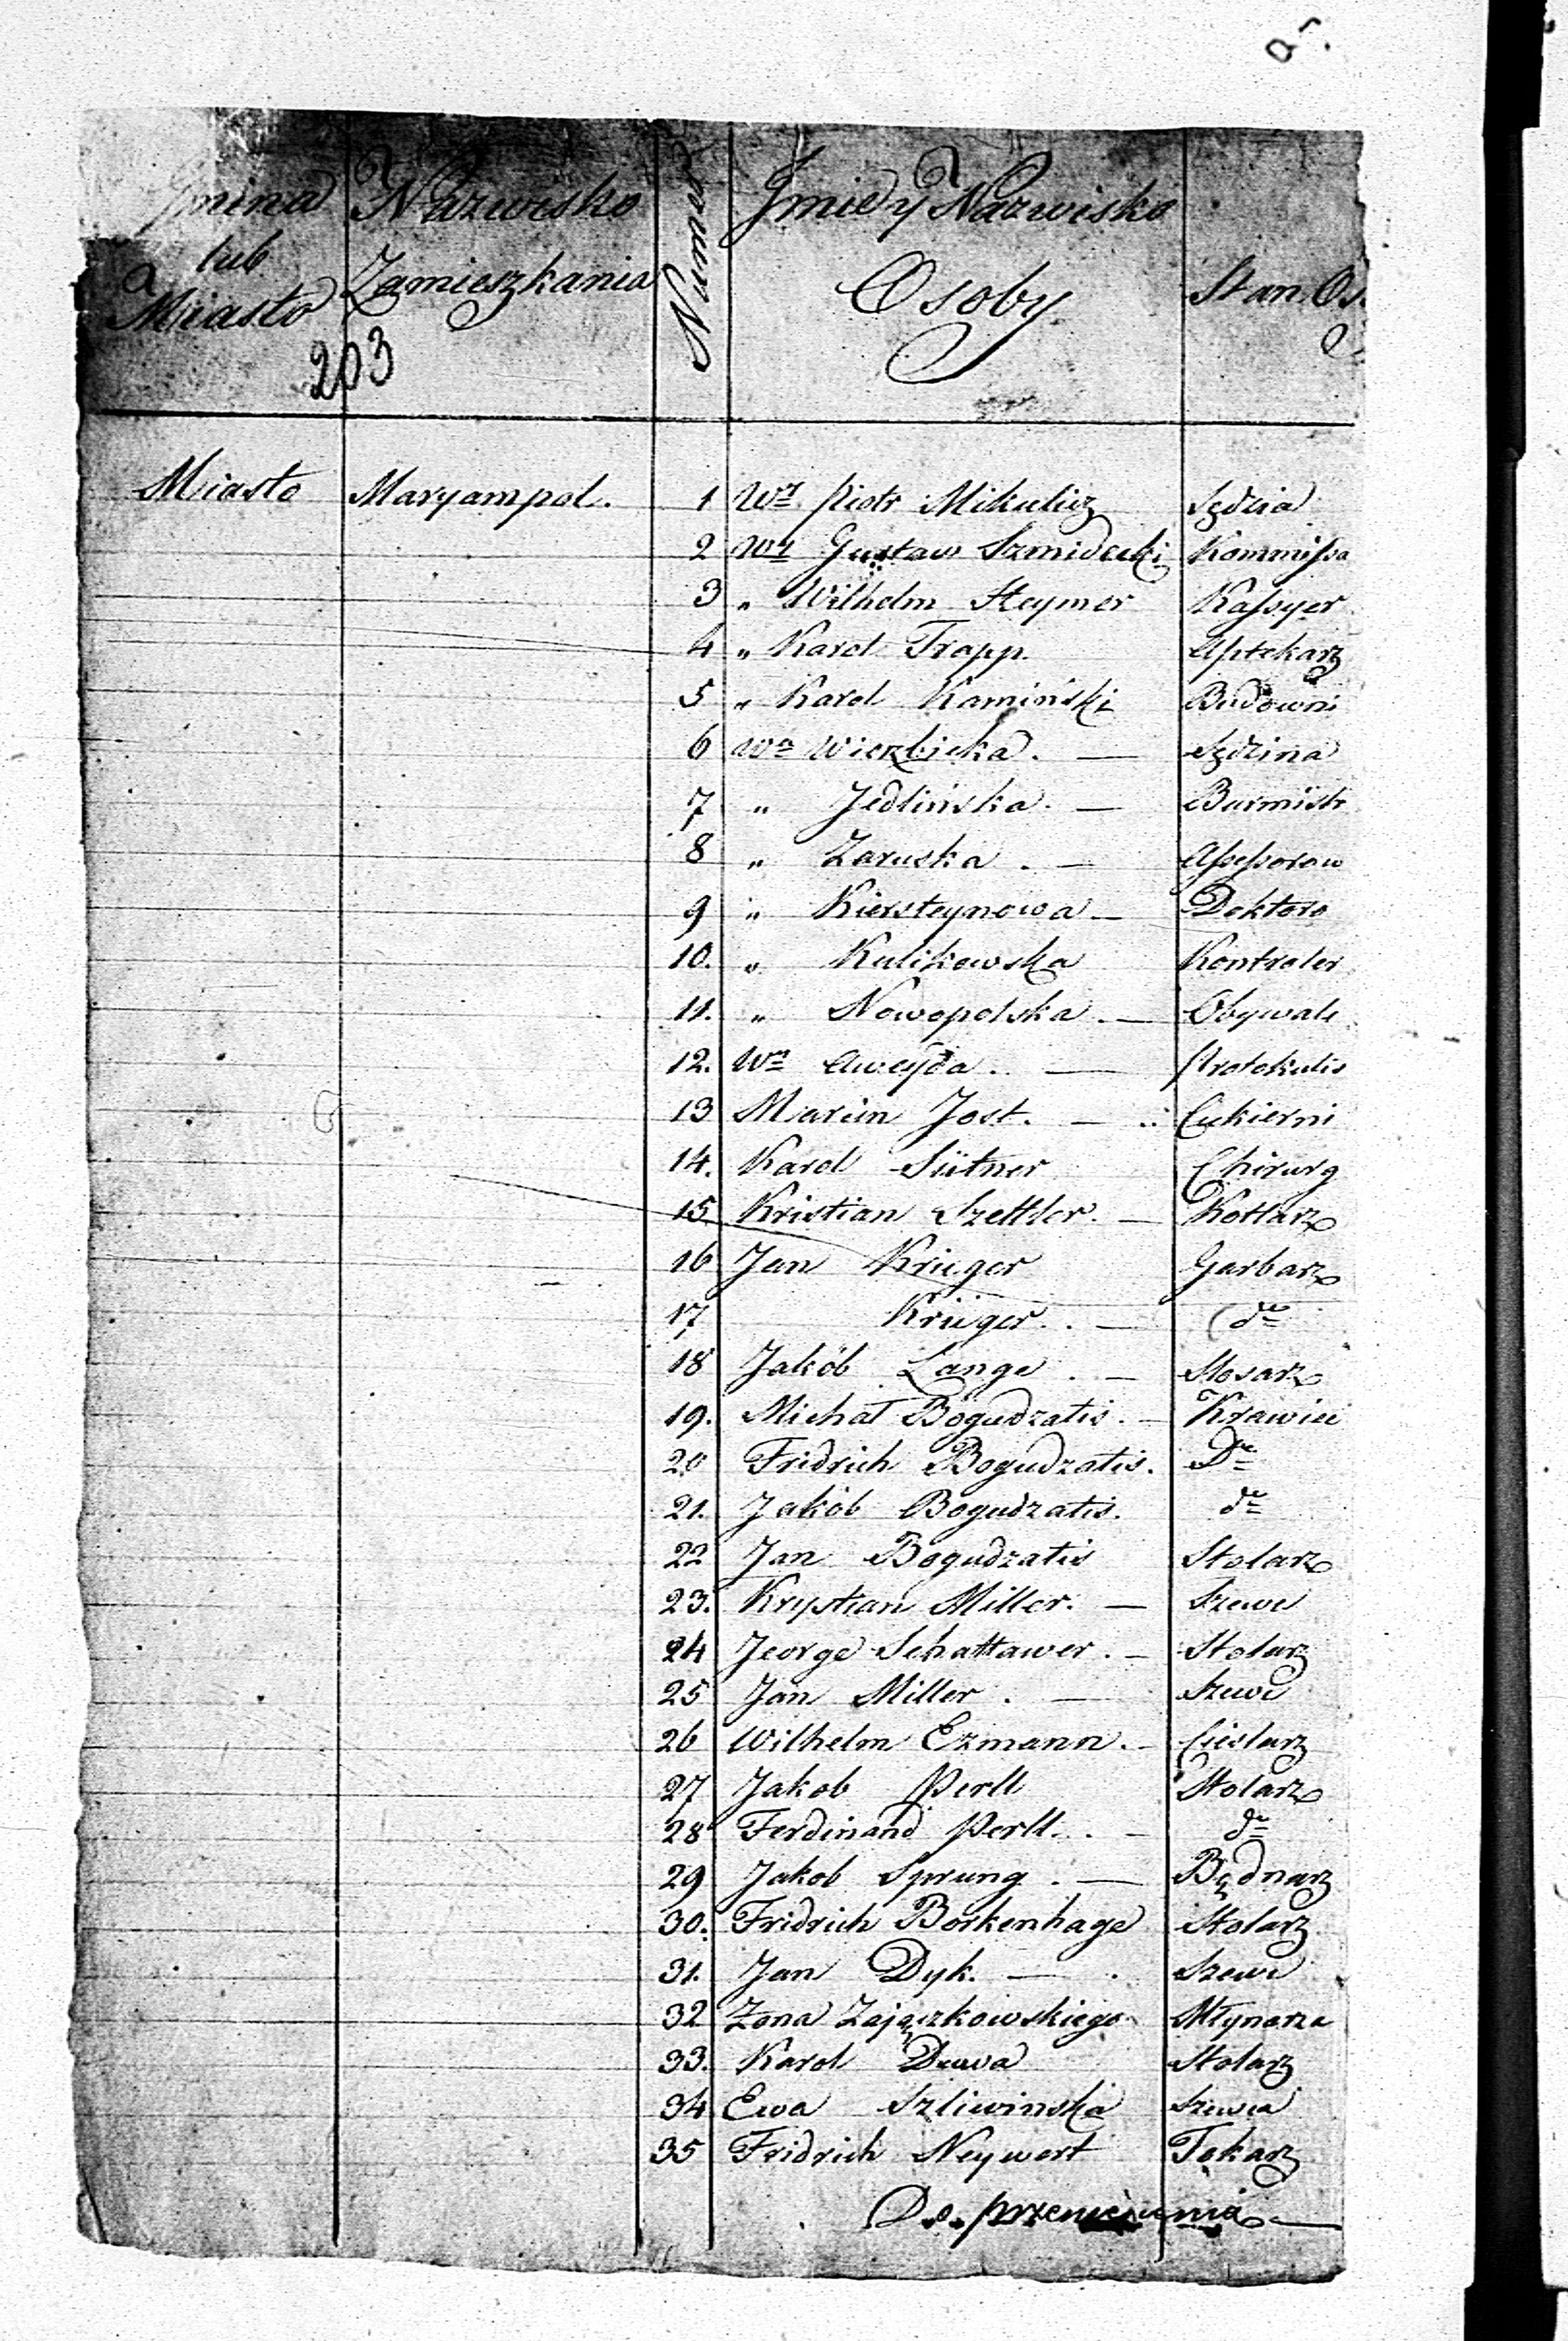 Gmina lub Miasto | Nazwisko Zamieszkania | Numer | Jmie y Nazwisko Osoby | Stan Os
203
Miasto | Maryampol. | 1 | Wy Piotr Mikulicz | Sędzia
2 | Wy Gustaw Szmidecki | Kommissa
3 | " Wilhelm Heymer | Kassyer
4 | " Karol Trapp. | Aptekarz
5 | " Karol Kamiński | Budowni
6 | Wa Wierzbicka. — | Sędzina
7 | " Jedlińska. — | Burmistr
8 | " Zaruska. — | Assessorow
9 | " Kiersteynowa — | Doktoro
10. | " Kulikowska | Kontroler
11. | " Nowopolska. — | Obywate
12. | Wa Aweyda. — | Protokulis
13 | Marcin Jost. — | Cukierni
14. | Karol Sütner | Chirurg
15 | Kristian Szettler. — | Kotlarz
16 | Jan Krüger | Garbarz
17 | Krüger. — | do
18 | Jakób Lange. — | Slosarz
19. | Michał Bogudzatis. — | Krawiec
20 | Fridrich Bogudzatis. | Do
21. | Jakób Bogudzatis. | do
22 | Jan Bogudzatis | Stolarz
23. | Krystian Miller. — | Szewc
24 | Jeorge Schattawer. — | Stolarz
25 | Jan Miller. — | Szewc
26 | Wilhelm Ezmann. — | Cieslarz
27 | Jakob Perll | Stolarz
28 | Ferdinand Perll. — | do
29 | Jakob Sprung. — | Będnarz
30. | Fridrich Borkenhage | Stolarz
31. | Jan Dyk. — | Szewc
32 | Zona Zajączkowskiego | Młynarza
33. | Karol Duwa | Stolarz
34 | Ewa Szliwinska | Szewca
35 | Fridrich Neywert | Tokarz
Do przeniesienia —